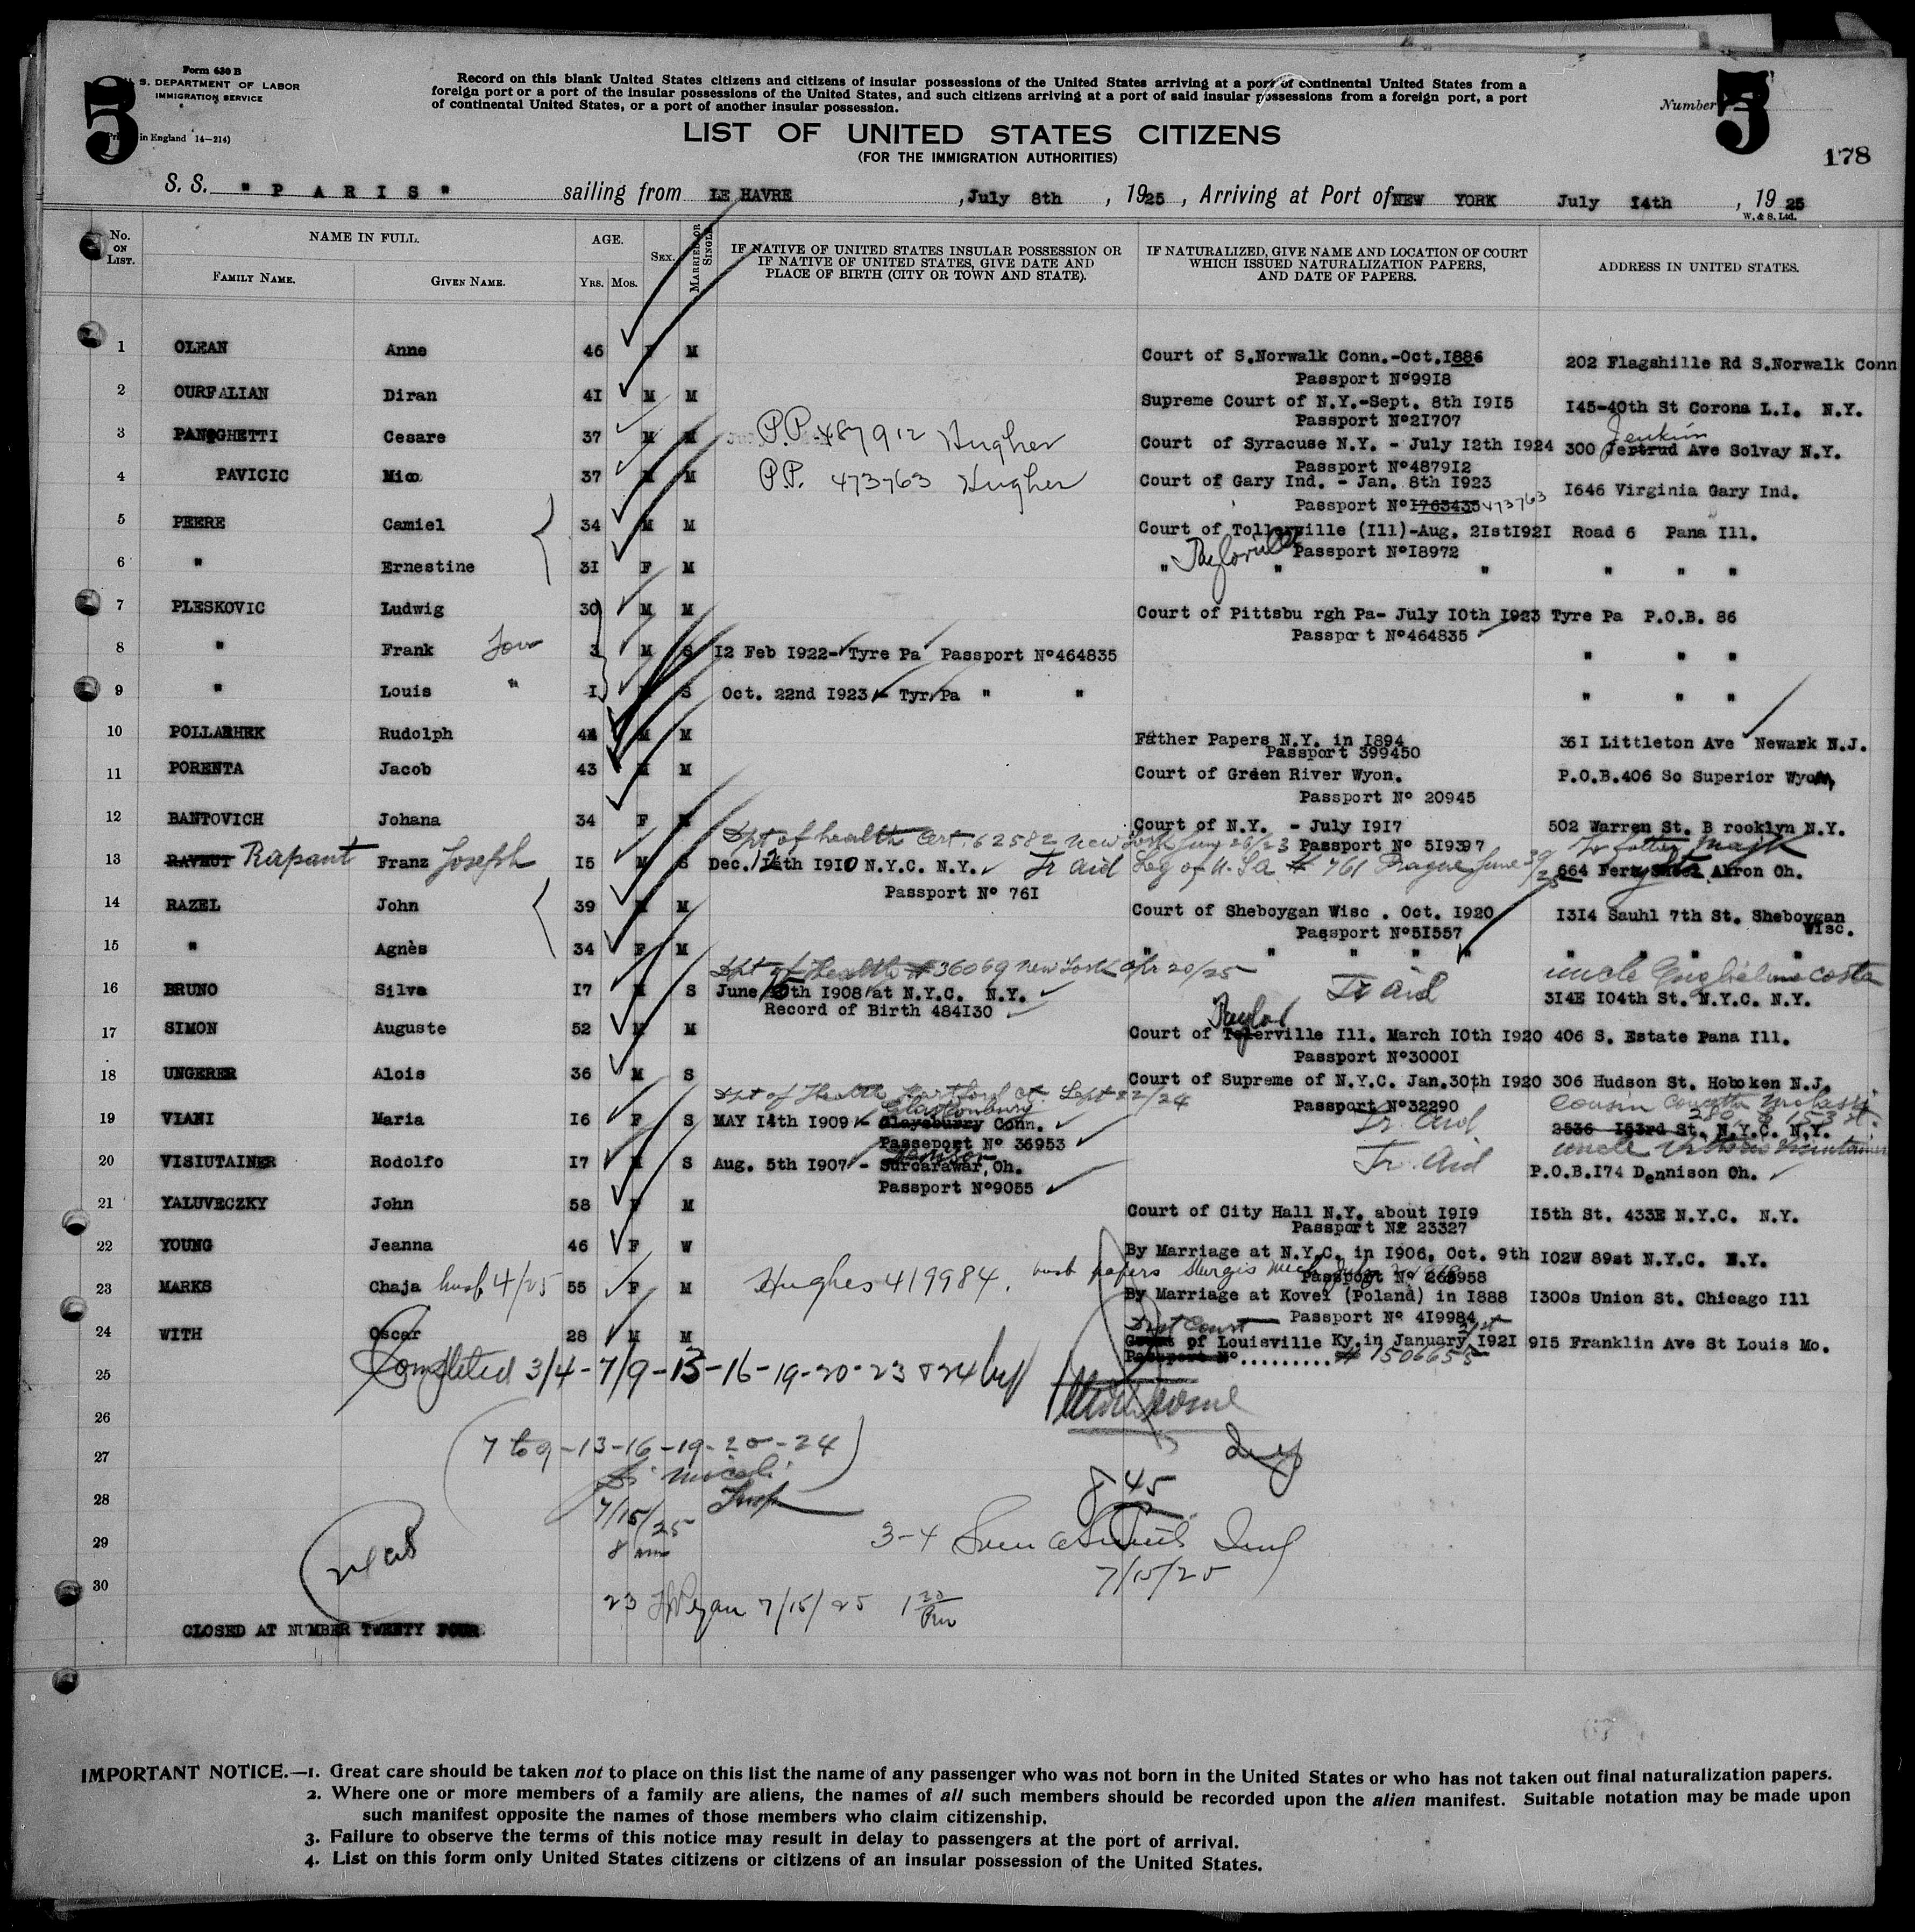 Form 630 B
U. S. DEPARTMENT OF LABOR
IMMIGRATION SERVICE
in England 14-214)
5
Record on this blank United States citizens and citizens of insular possessions of the United States arriving at a port of continental United States from a
foreign port or a port of the insular possessions of the United States, and such citizens arriving at a port of said insular possessions from a foreign port, a port
of continental United States, or a port of another insular possession.
LIST OF UNITED STATES CITIZENS
(FOR THE IMMIGRATION AUTHORITIES)
Number 5
178
S. S. "PARIS" sailing from LE HAVRE , July 8th , 1925 , Arriving at Port of NEW YORK July 14th , 19 25
W. & S. Ltd.
No. ON LIST. NAME IN FULL. AGE. SEX. MARRIED OR SINGLE
FAMILY NAME. GIVEN NAME. YRS. MOS.
IF NATIVE OF UNITED STATES INSULAR POSSESSION OR
IF NATIVE OF UNITED STATES, GIVE DATE AND
PLACE OF BIRTH (CITY OR TOWN AND STATE).
IF NATURALIZED, GIVE NAME AND LOCATION OF COURT
WHICH ISSUED NATURALIZATION PAPERS,
AND DATE OF PAPERS.
ADDRESS IN UNITED STATES.
1 OLEAN Anne 46 F M Court of S.Norwalk Conn.-Oct.I886 202 Flagshille Rd S.Norwalk Conn
Passport N°99I8
2 OURFALIAN Diran 4I M M Supreme Court of N.Y.-Sept. 8th I9I5 I45-40th St Corona L.I. N.Y.
Passport N°2I707
3 PANOGHETTI Cesare 37 M M P.P. 487912 Hughes Court of Syracuse N.Y. - July I2th I924 300 Jertrud Jenkins Ave Solvay N.Y.
Passport N°4879I2
4 PAVICIC Mico 37 M M P.P. 473763 Hughes Court of Gary Ind. - Jan. 8th I923 I646 Virginia Gary Ind.
Passport N°I763435 473763
5 PEERE Camiel 34 M M Court of Tollerville (Ill)-Aug. 2IstI92I Road 6 Pana Ill.
Taylorville Passport N°I8972
6 " Ernestine 3I F M " " " " " "
7 PLESKOVIC Ludwig 30 M M Court of Pittsbu rgh Pa- July I0th I923 Tyre Pa P.O.B. 86
Passport N°464835
8 " Frank Son 3 M S I2 Feb I922- Tyre Pa Passport N°464835 " " "
9 " Louis " I M S Oct. 22nd I923 - Tyr Pa " " " " "
10 POLLAEHEK Rudolph 44 M M Father Papers N.Y. in I894 36I Littleton Ave Newark N.J.
Passport 399450
11 PORENTA Jacob 43 M M Court of Green River Wyon. P.O.B.406 So Superior Wyom
Passport N° 20945
12 BANTOVICH Johana 34 F M Court of N.Y. - July I9I7 502 Warren St. B rooklyn N.Y.
Dpt of health Cert. 62582 New York Jun 26/23 Passport N° 5I9397 To father
13 Rapant Franz Joseph I5 M S Dec. 12th I9I0 N.Y.C. N.Y. Tr aid Leg of U.S.A. # 761 Prague June 664 Ferry Akron Oh.
Passport N° 76I
14 RAZEL John 39 M M Court of Sheboygan Wisc . Oct. I920 I3I4 Sauhl 7th St. Sheboygan
Passport N°5I557 Wisc.
15 " Agnès 34 F M " " " " " " " " "
Dpt of Health # 36069 New York Apr 20/25 uncle Guglielmo Costa
16 BRUNO Silva I7 M S June th I908 at N.Y.C. N.Y. Tr aid 3I4E I04th St. N.Y.C. N.Y.
Record of Birth 484I30
17 SIMON Auguste 52 M M Court of Taylorville Ill. March I0th I920 406 S. Estate Pana Ill.
Passport N°3000I
18 UNGERER Alois 36 M S Court of Supreme of N.Y.C. Jan.30th I920 306 Hudson St. Hoboken N.J.
Dpt of Health Hartford Ct. Sept 22/24 Passport N°32290 cousin
19 VIANI Maria I6 F S MAY I4th I909 - Glastonbury Conn. Tr. Aid 2536 I53rd St. N.Y.C. N.Y.
Passeport N° 36953 uncle
20 VISIUTAINER Rodolfo I7 M S Aug. 5th I907 - Surcarawar, Oh. Tr. Aid P.O.B.I74 Dennison Oh.
Passport N°9055
21 YALUVECZKY John 58 F M Court of City Hall N.Y. about I9I9 I5th St. 433E N.Y.C. N.Y.
Passport N° 23327
22 YOUNG Jeanna 46 F W By Marriage at N.Y.C. in I906. Oct. 9th I02W 89st N.Y.C. N.Y.
husb papers Sturgis Mich Passport N° 265958
23 MARKS Chaja husb 4/25 55 F M Hughes 419984. By Marriage at Kovel (Poland) in I888 I300s Union St. Chicago Ill
Passport N° 4I9984
24 WITH Oscar 28 M M Dist Court of Louisville Ky.in January 21st I92I 9I5 Franklin Ave St Louis Mo.
Passport N°......... # 1506655
25 Completed 3/4-7/9-13-16-19-20-23 & 24
26
27 (7 to 9-13-16-19-20-24)
Insp
28 7/15/25 8 45
29 8 am 3-4 7/15/25
30
23 Ryan 7/15/25 1 20 Pm
CLOSED AT NUMBER TWENTY FOUR
IMPORTANT NOTICE.—1. Great care should be taken not to place on this list the name of any passenger who was not born in the United States or who has not taken out final naturalization papers.
2. Where one or more members of a family are aliens, the names of all such members should be recorded upon the alien manifest. Suitable notation may be made upon
such manifest opposite the names of those members who claim citizenship.
3. Failure to observe the terms of this notice may result in delay to passengers at the port of arrival.
4. List on this form only United States citizens or citizens of an insular possession of the United States.